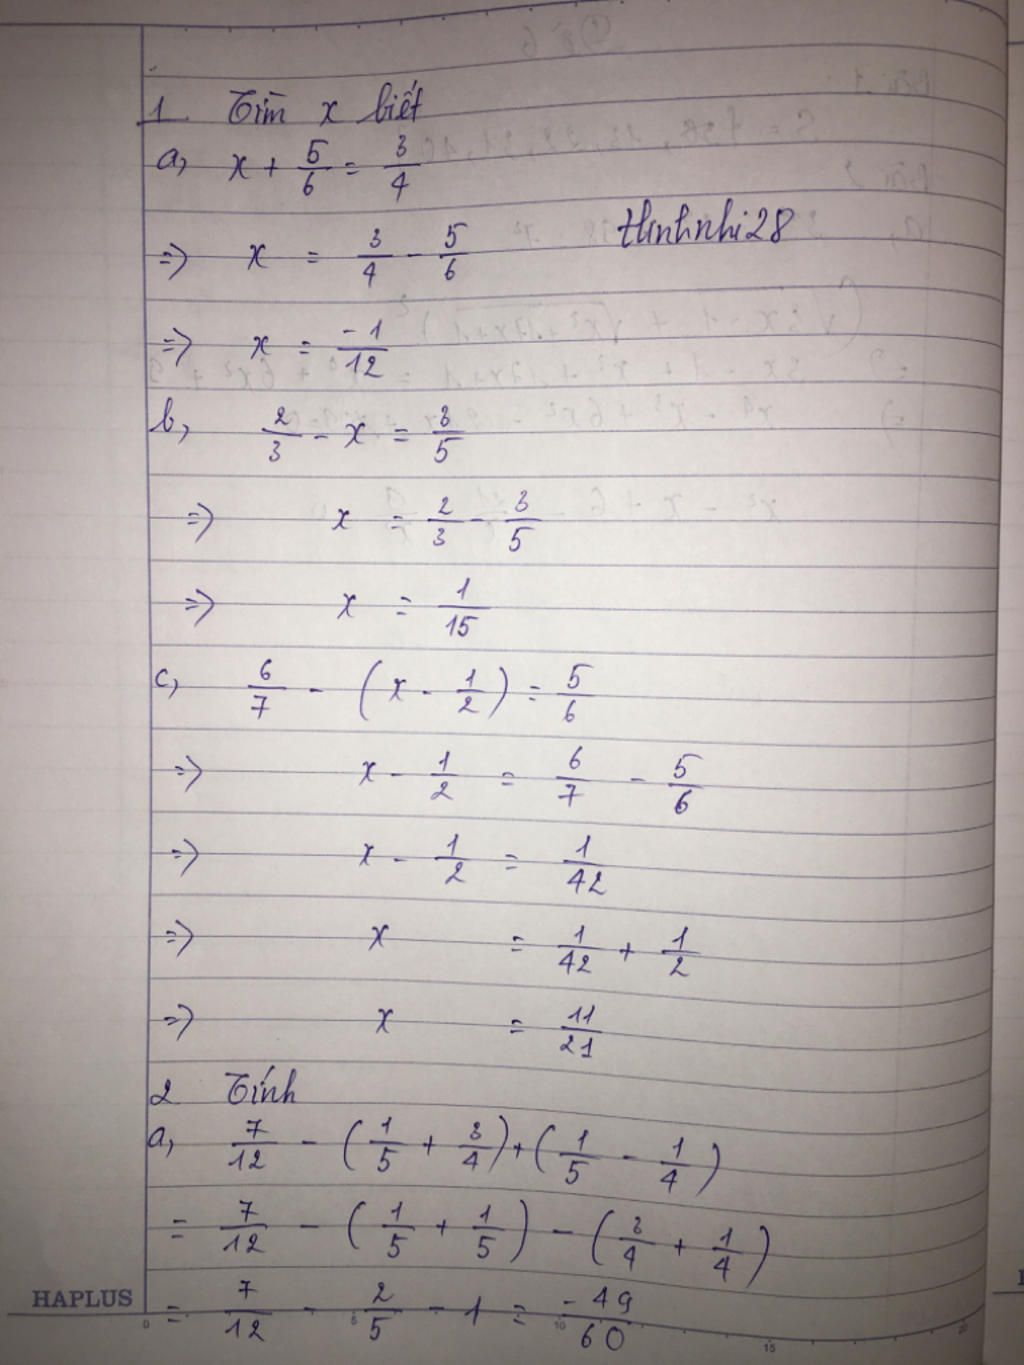 1 Tìm x biết
a, x + 5/6 = 3/4
=> x = 3/4 - 5/6
thinhnhi28
=> x = -1/12
b, 2/3 - x = 3/5
=> x = 2/3 - 3/5
=> x = 1/15
c, 6/7 - (x - 1/2) = 5/6
=> x - 1/2 = 6/7 - 5/6
=> x - 1/2 = 1/42
=> x = 1/42 + 1/2
=> x = 11/21
2 Tính
a, 7/12 - (1/5 + 3/4) + (1/5 - 1/4)
= 7/12 - (1/5 + 1/5) - (3/4 + 1/4)
HAPLUS
= 7/12 - 2/5 - 1 = -49/60
0 5 10 15 20